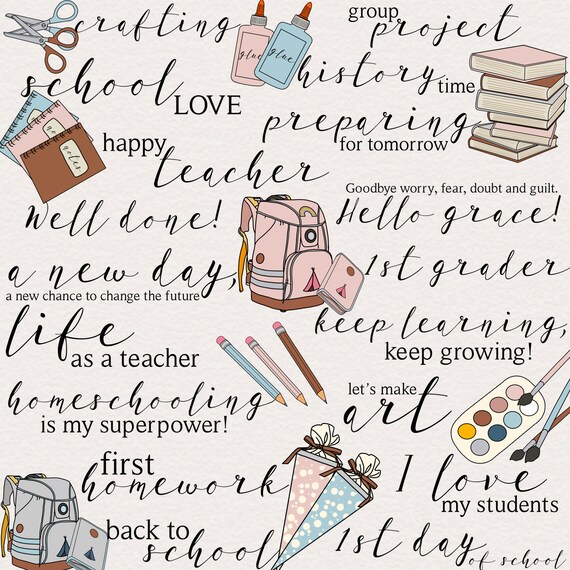 crafting
glue
glue
group
project
school
LOVE
history
time
notes
preparing
for tomorrow
happy
teacher
Goodbye worry, fear, doubt and guilt.
Hello grace!
Well done!
a new day,
a new chance to change the future
1st grader
life
as a teacher
keep learning,
keep growing!
homeschooling
is my superpower!
let's make
art
first
homework
I love
my students
back to
school
1st day
of school